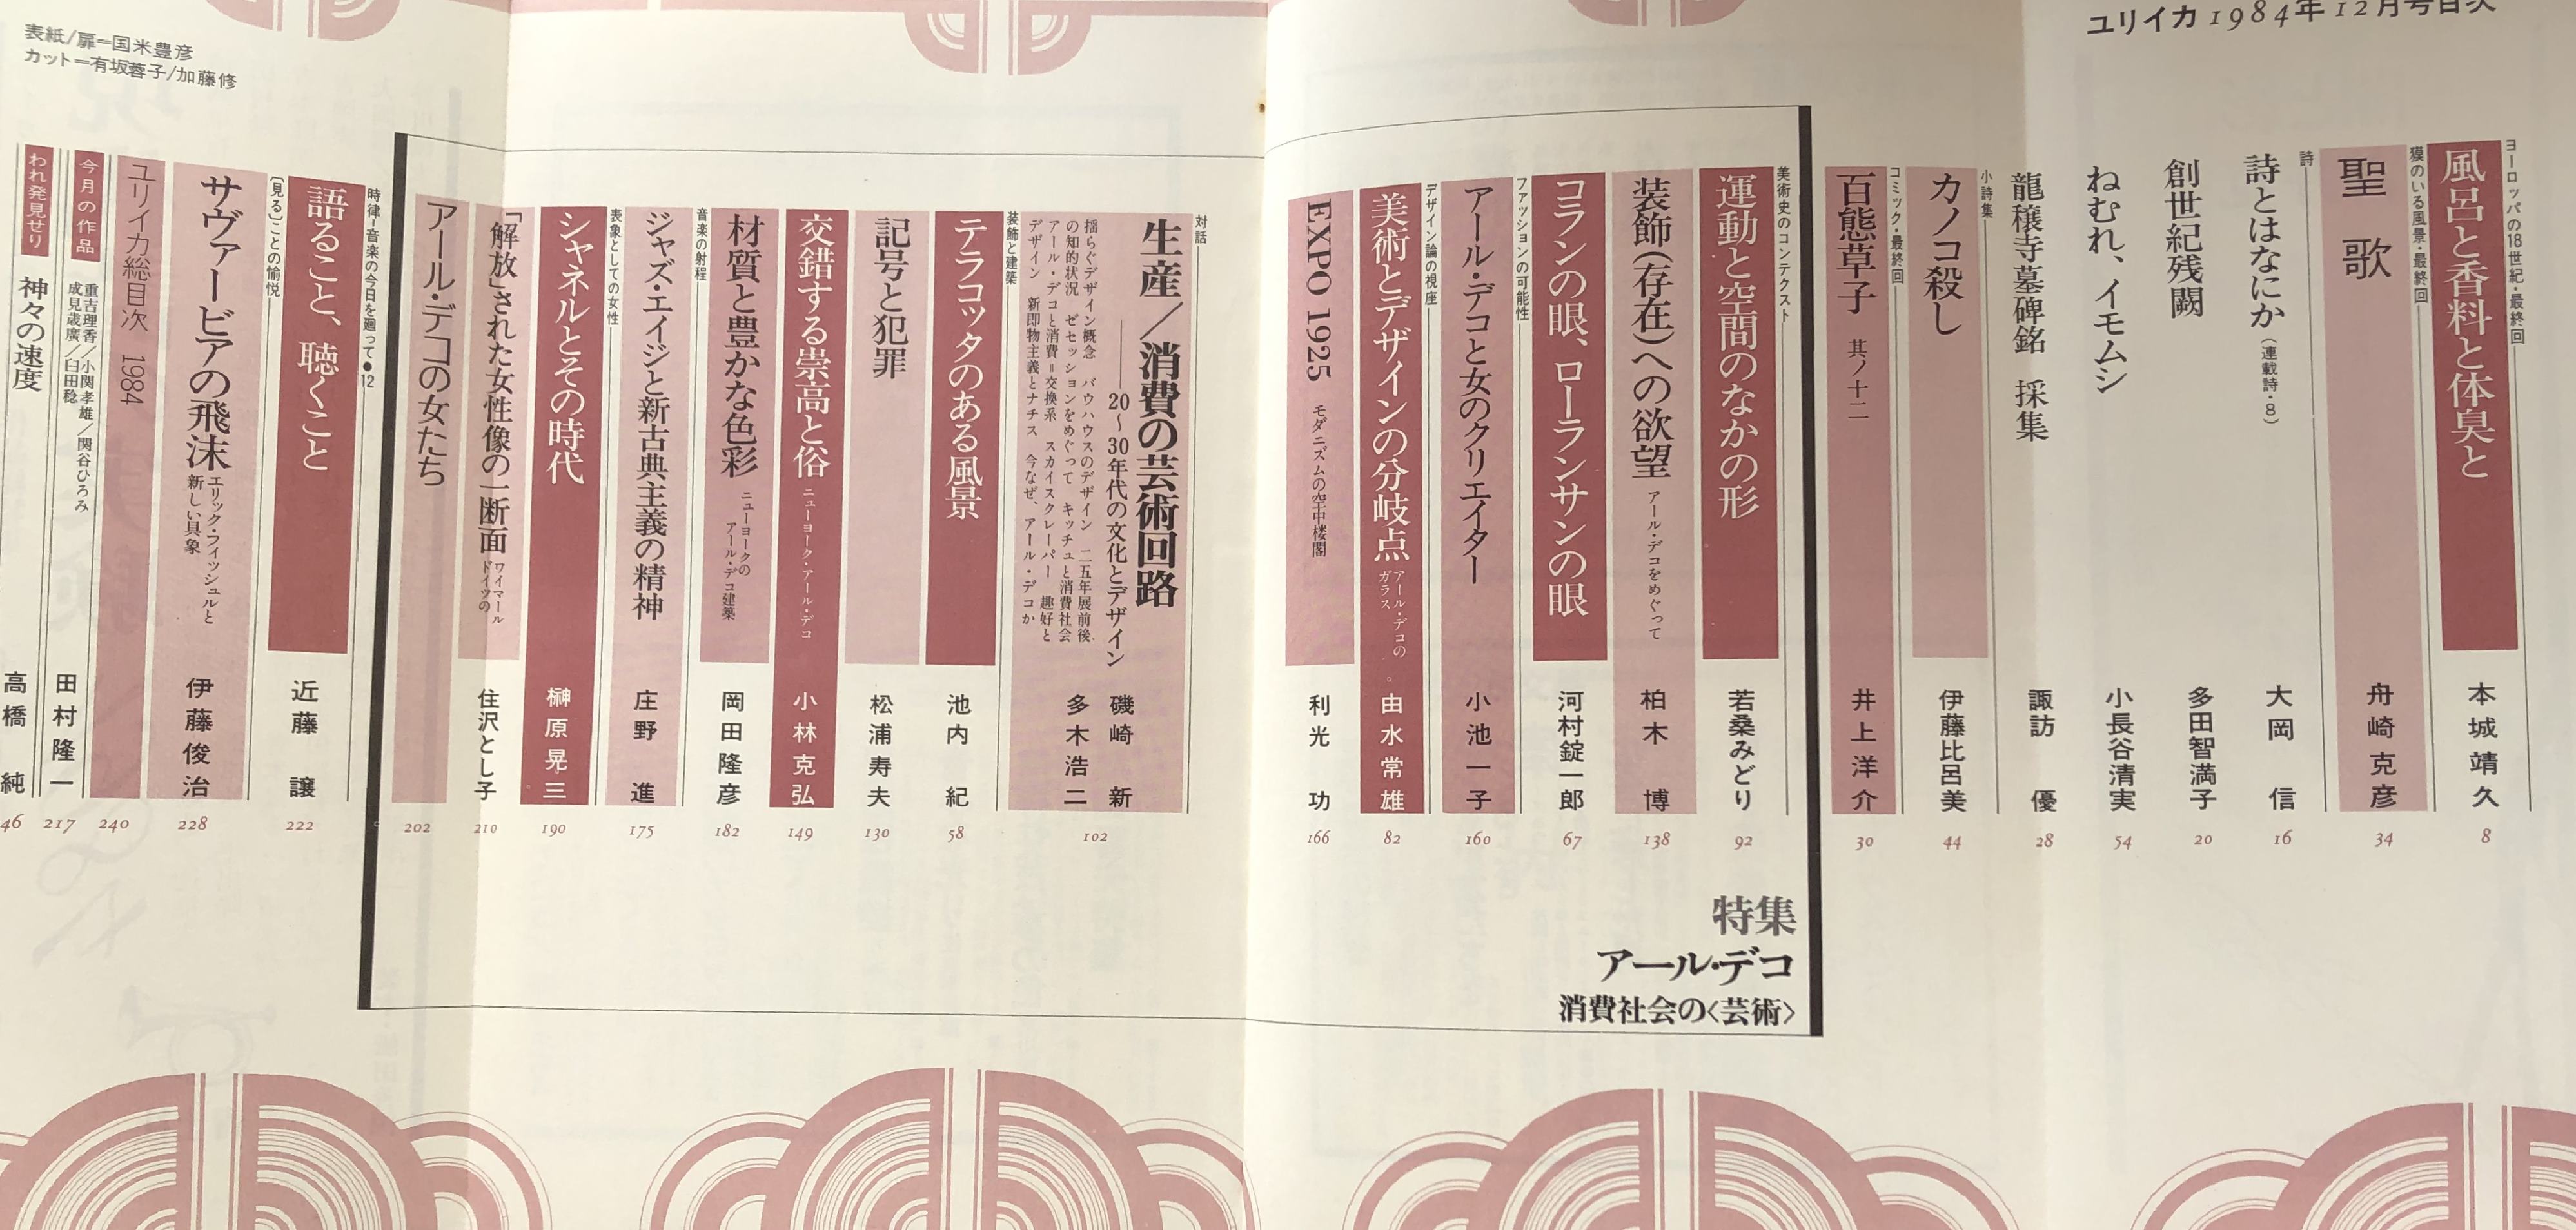 ユリイカ 1984年12月号目次
ヨーロッパの18世紀・最終回
風呂と香料と体臭と
本城靖久
8
獏のいる風景・最終回
聖歌
舟崎克彦
34
詩
詩とはなにか(連載詩・8)
大岡 信
16
創世紀残闕
多田智満子
20
ねむれ、イモムシ
小長谷清実
54
龍穣寺墓碑銘 採集
諏訪 優
28
小詩集
カノコ殺し
伊藤比呂美
44
コミック・最終回
百態草子 其ノ十二
井上洋介
30
特集
アール・デコ
消費社会の〈芸術〉
美術史のコンテクスト
運動と空間のなかの形
若桑みどり
92
装飾(存在)への欲望 アール・デコをめぐって
柏木 博
138
コランの眼、ローランサンの眼
河村錠一郎
67
ファッションの可能性
アール・デコと女のクリエイター
小池一子
160
デザイン論の視座
美術とデザインの分岐点 アール・デコの
ガラス
由水常雄
82
EXPO 1925 モダニズムの空中楼閣
利光 功
166
対話
生産／消費の芸術回路
――20〜30年代の文化とデザイン
揺らぐデザイン概念 バウハウスのデザイン 二五年展前後
の知的状況 ゼセッションをめぐって キッチュと消費社会
アール・デコと消費＝交換系 スカイスクレーパー 趣好と
デザイン 新即物主義とナチス 今なぜ、アール・デコか
磯崎 新
多木浩二
102
装飾と建築
テラコッタのある風景
池内 紀
58
記号と犯罪
松浦寿夫
130
交錯する崇高と俗 ニューヨーク・アール・デコ
小林克弘
149
材質と豊かな色彩 ニューヨークの
アール・デコ建築
岡田隆彦
182
音楽の射程
ジャズ・エイジと新古典主義の精神
庄野 進
175
表象としての女性
シャネルとその時代
榊原晃三
190
「解放」された女性像の一断面 ワイマール
ドイツの
住沢とし子
210
アール・デコの女たち
202
時律－音楽の今日を廻って●12
語ること、聴くこと
近藤 譲
222
〔見る〕ことの愉悦
サヴァービアの飛沫 エリック・フィッシュルと
新しい具象
伊藤俊治
228
ユリイカ総目次 1984
240
今月の作品
重吉理香／小関孝雄／関谷ひろみ
成見歳廣／臼田稔
田村隆一
217
われ発見せり
神々の速度
高橋 純
46
表紙/扉＝国米豊彦
カット＝有坂蓉子/加藤修